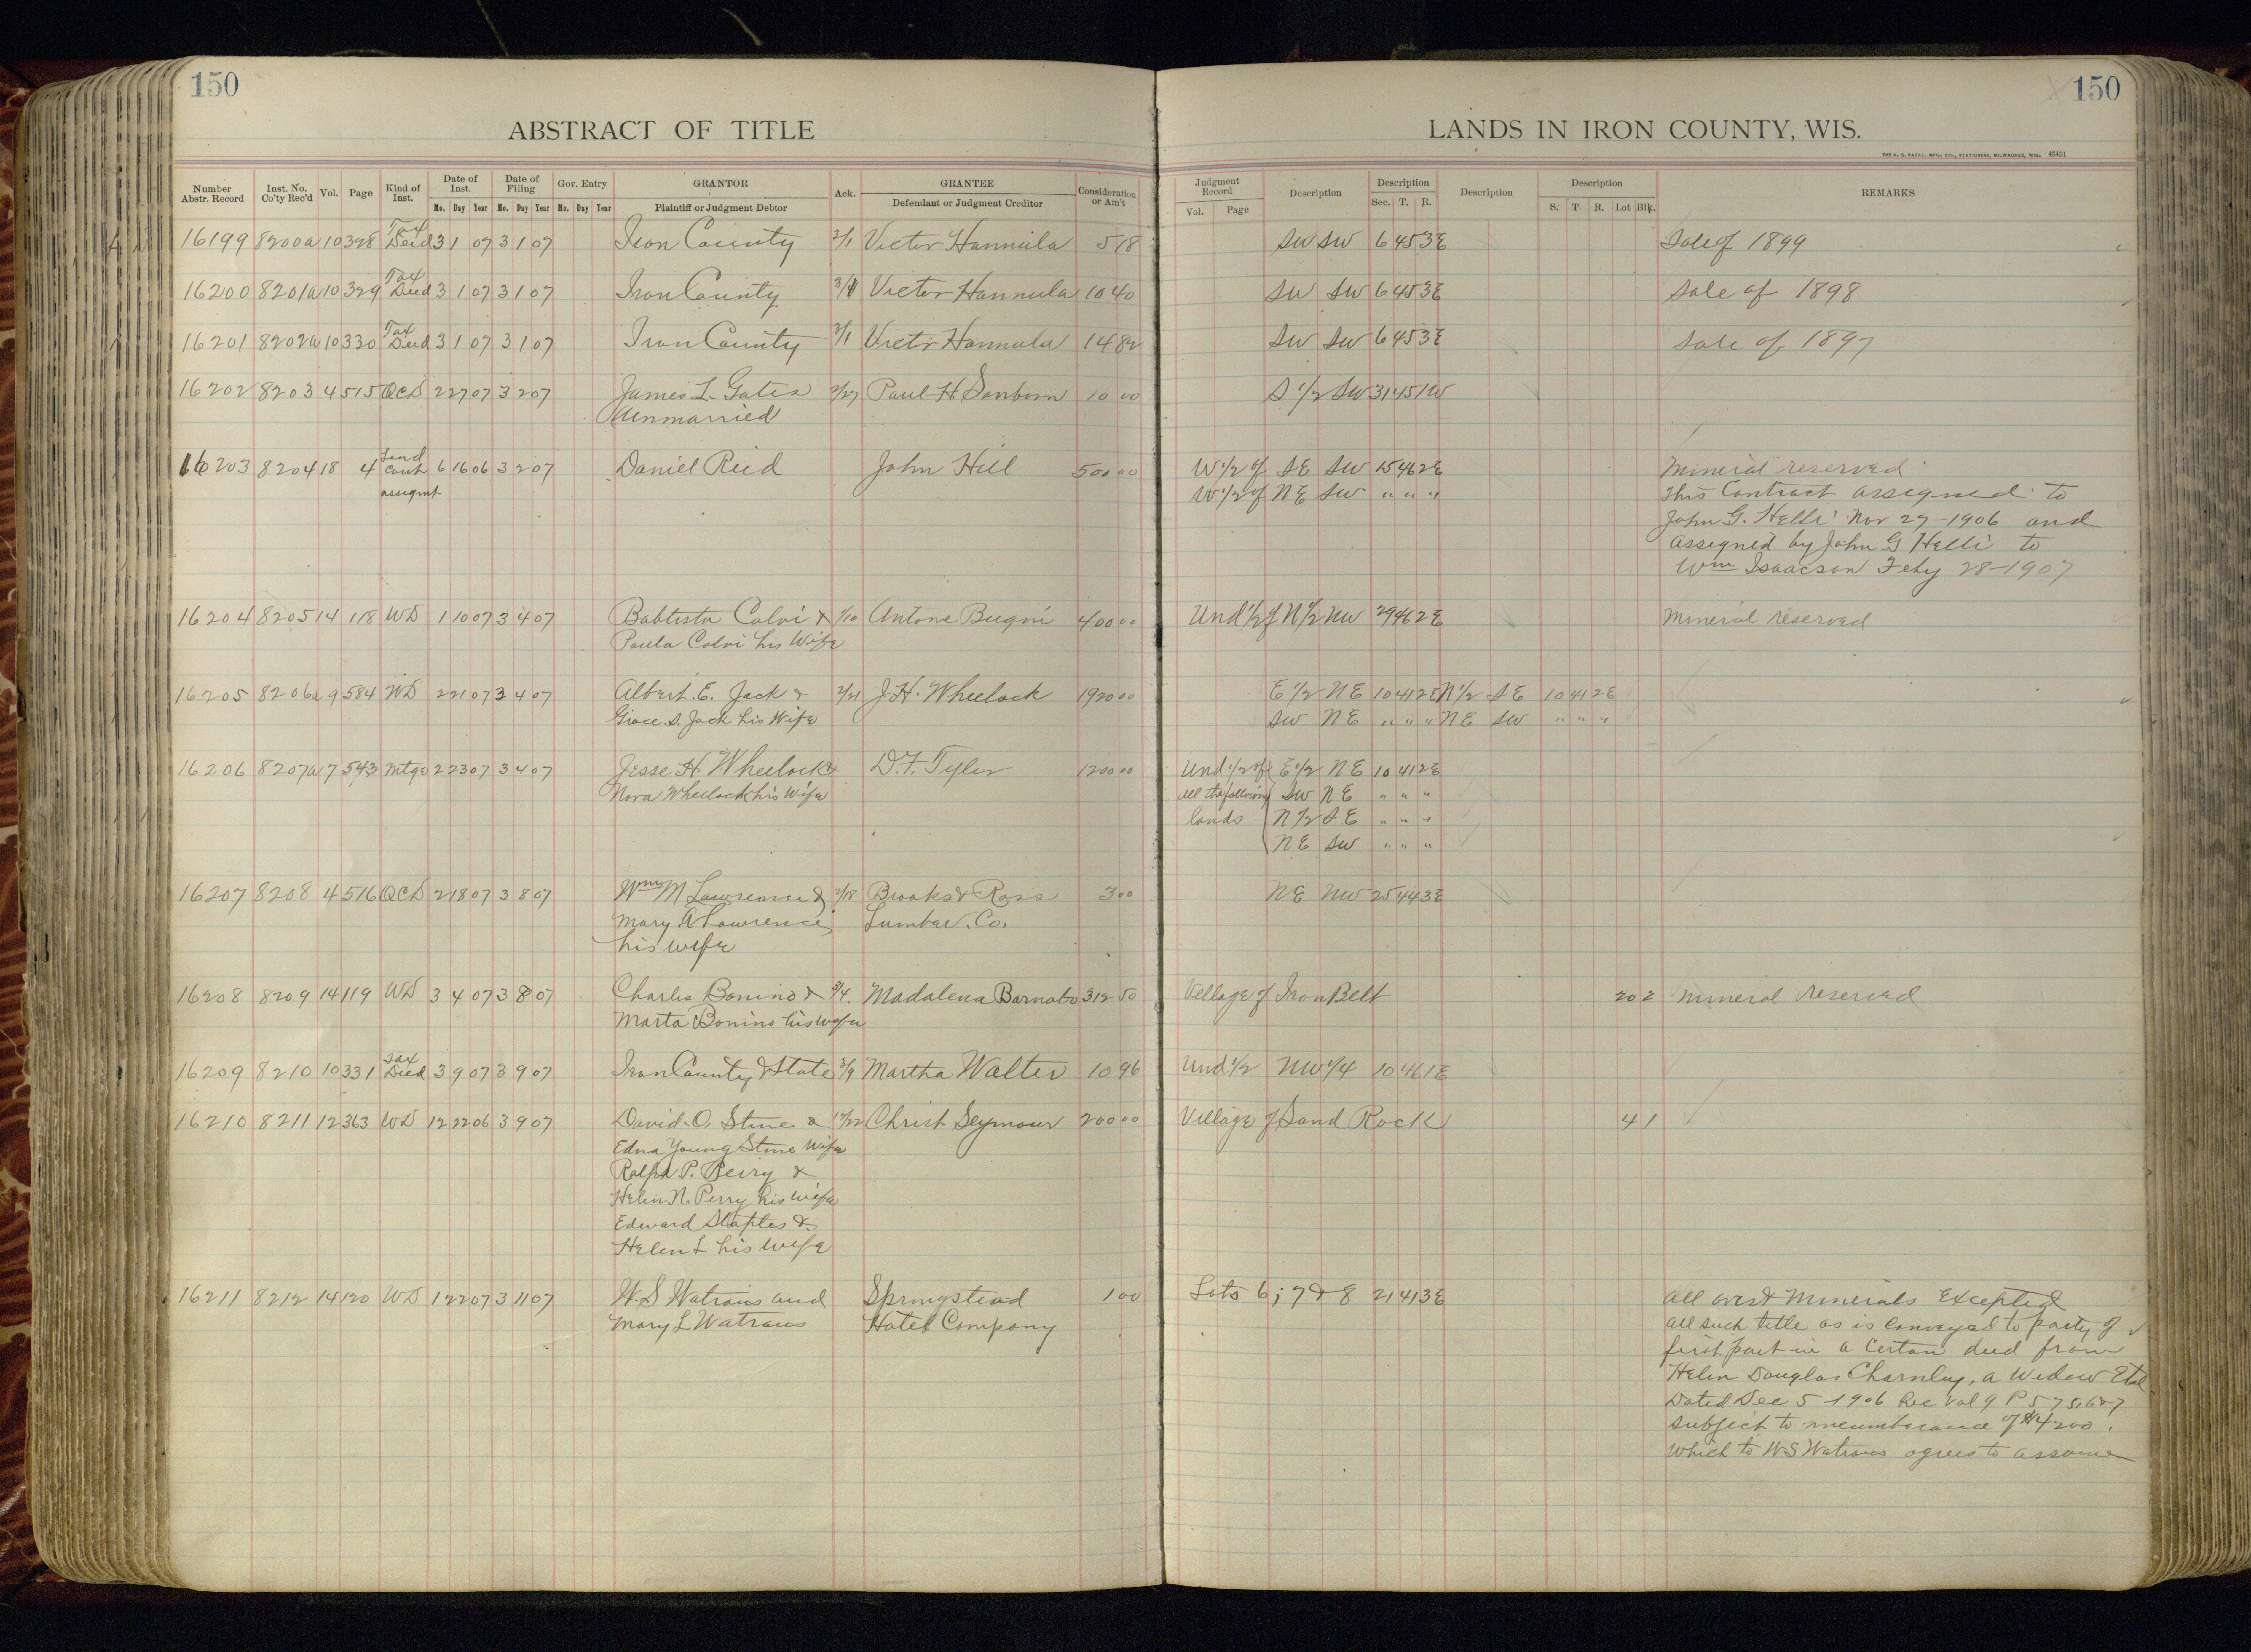 150
150
ABSTRACT OF TITLE
LANDS IN IRON COUNTY, WIS.
THE H. G. RAZALL MFG. CO., STATIONERS, MILWAUKEE, WIS. 45431
Number Abstr. Record Inst. No. Co'ty Rec'd Vol. Page Kind of Inst. Date of Inst. Date of Filing Gov. Entry GRANTOR Ack. GRANTEE Consideration or Am't Judgment Record Description Description Description Description REMARKS
Mo. Day Year Mo. Day Year Mo. Day Year Plaintiff or Judgment Debtor Defendant or Judgment Creditor Vol. Page Sec. T. R. S. T. R. Lot Blk.
16199 8200a 10 328 Tax Deed 3 1 07 3 1 07 Iron County 3/1 Victor Hannula 5 18 SW SW 6 45 3E Sale of 1899
16200 8201a 10 329 Tax Deed 3 1 07 3 1 07 Iron County 3/1 Victor Hannula 10 40 SW SW 6 45 3E Sale of 1898
16201 8202a 10 330 Tax Deed 3 1 07 3 1 07 Iron County 3/1 Victor Hannula 14 82 SW SW 6 45 3E Sale of 1897
16202 8203 4 515 QCD 2 27 07 3 2 07 James L. Gates 2/27 Paul H. Sanborn 10 00 S 1/2 SW 31 45 1W
Unmarried
16203 8204 18 4 Land Cont 6 16 06 3 2 07 Daniel Reid John Hill 500 00 W 1/2 of SE SW 15 46 2E Mineral reserved
assignt W 1/2 of NE SW " " " This Contract assigned to
John G. Helli Nov 27-1906 and
assigned by John G Helli to
Wm Isaacson Feby 28-1907
16204 8205 14 118 WD 1 10 07 3 4 07 Babtista Calvi & 1/10 Antone Bugni 400 00 Und 1/2 of N 1/2 NW 29 46 2E Mineral reserved
Paula Calvi his Wife
16205 8206a 9 584 WD 2 21 07 3 4 07 Albert E. Jack & 2/21 J.H. Wheelock 1920 00 E 1/2 NE 10 41 2E N 1/2 SE 10 41 2E
Grace S. Jack his Wife SW NE " " " NE SW " " "
16206 8207a 7 543 Mtge 2 23 07 3 4 07 Jesse H. Wheelock & D.F. Tyler 1200 00 Und 1/2 of E 1/2 NE 10 41 2E
Nora Wheelock his Wife all the following SW NE " " "
lands N 1/2 SE " " "
NE SW " " "
16207 8208 4 516 QCD 2 18 07 3 8 07 Wm M Lawrence & 2/18 Brooks & Ross 3 00 NE NW 25 44 3E
Mary A Lawrence Lumber Co.
his wife
16208 8209 14 119 WD 3 4 07 3 8 07 Charles Bonino & 3/4 Madalena Barnabo 312 50 Village of Iron Belt 20 2 Mineral reserved
Marta Bonino his wife
16209 8210 10 331 Tax Deed 3 9 07 3 9 07 Iron County & State 3/9 Martha Walter 10 96 Und 1/2 NW 1/4 10 46 1E
16210 8211 12 363 WD 12 22 06 3 9 07 David O. Stine & 12/22 Christ Seymour 200 00 Village of Sand Rock 4 1
Edna Young Stine Wife
Ralph P. Perry &
Helen N. Perry his wife
Edward Staples &
Helen L his wife
16211 8212 14 120 WD 1 22 07 3 11 07 W.S Watrous and Springstead 1 00 Lots 6; 7 & 8 21 41 3E All ores & Minerals Excepted
Mary L Watrous Hotel Company all such title as is Conveyed to party of
first part in a Certain deed from
Helen Douglas Charnley, a Widow Etal
Dated Dec 5-1906 Rec Vol 9 P 575 6&7
Subject to incumberance of $4200.
Which to W.S Watrous agrees to assume